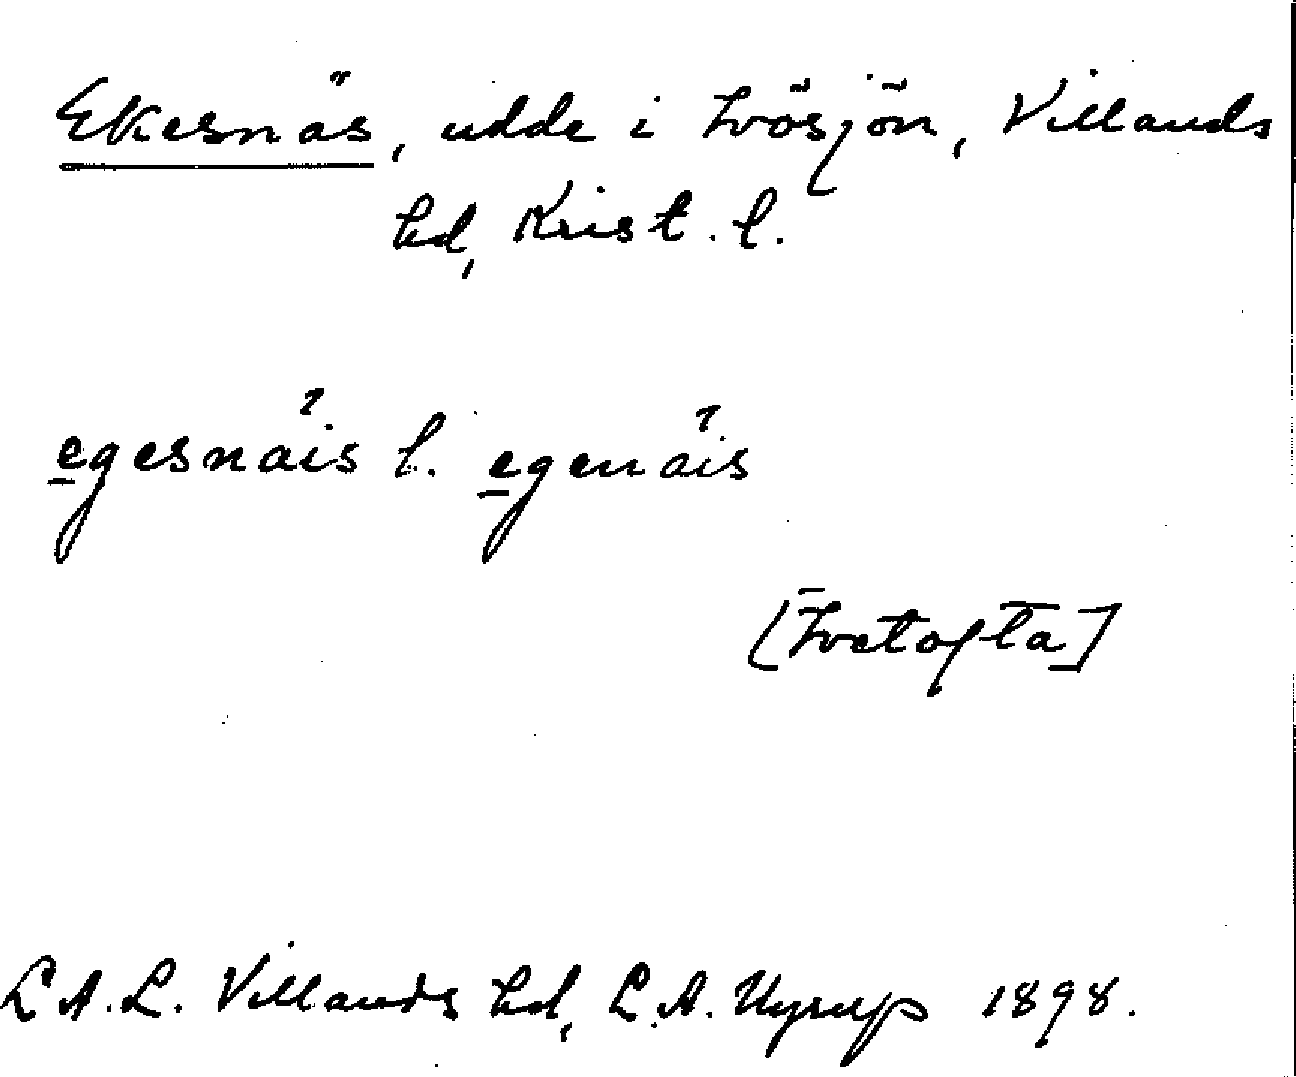 Ekesnäs, udde i Ivösjön, Villands
hd, Krist. l.
egesnáis l. egenáis
[Ivetofta]
L.A.L. Villands hd, L.A. Nyrup 1898.